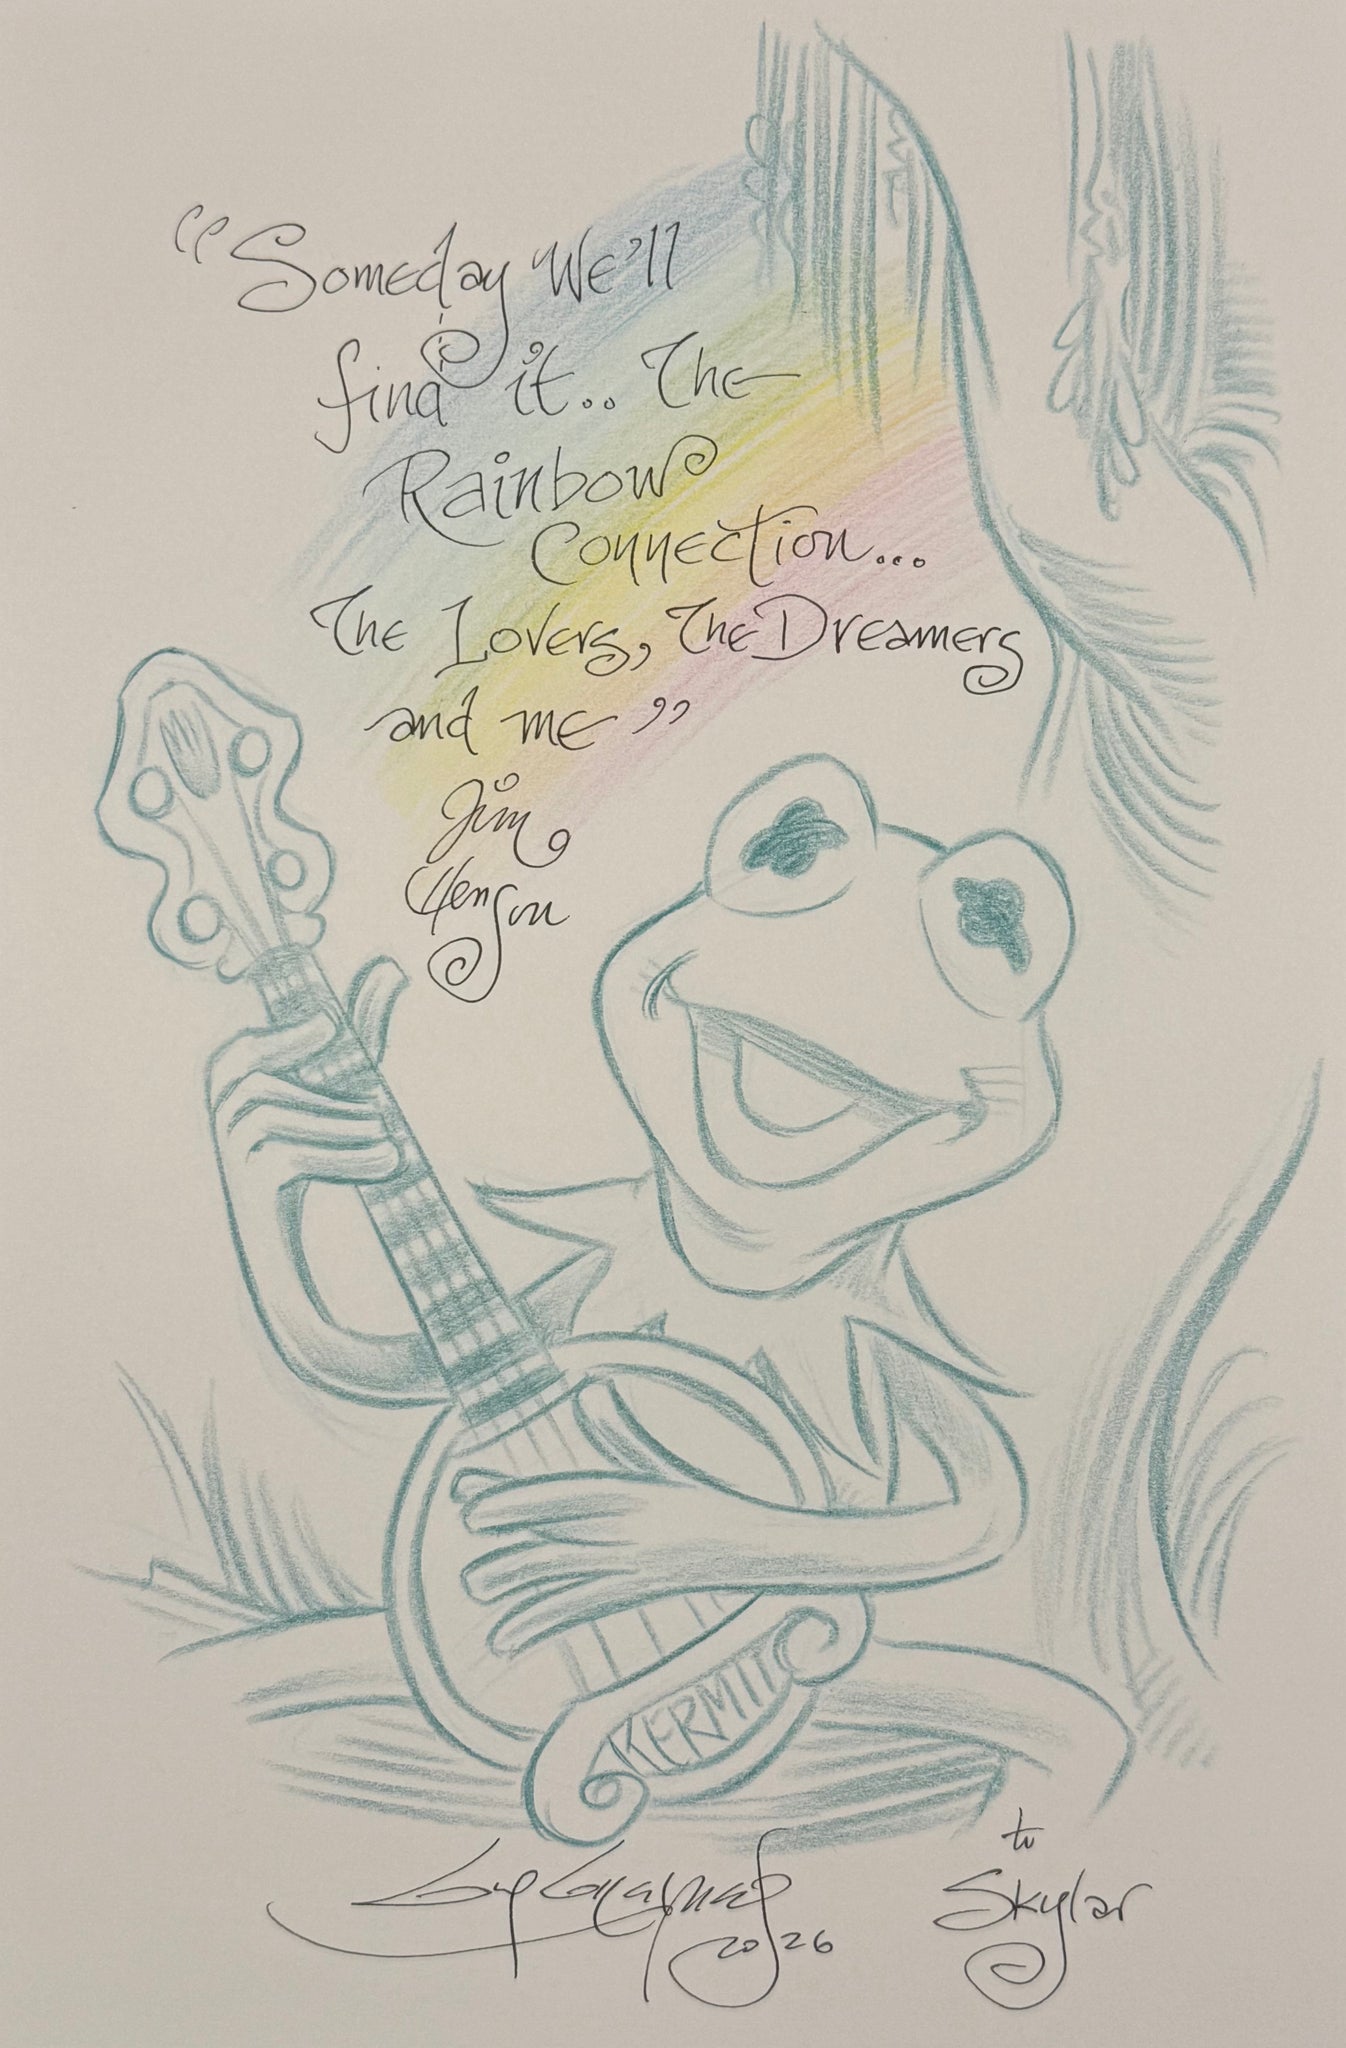 “Someday We’ll
find it.. The
Rainbow
Connection...
The Lovers, The Dreamers
and me”
Jim
Henson
KERMIT
2026
to
Skylar